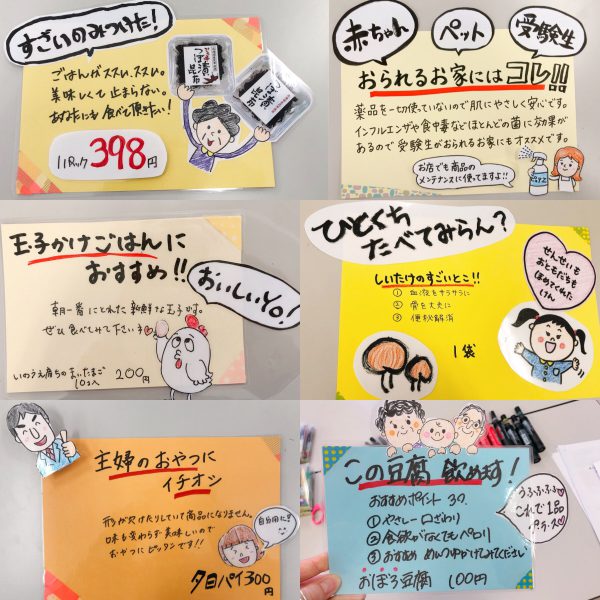 すごいのみつけた!
ごはんがススム、ススム。
美味しくて止まらない。
あなたにも食べて頂きたい!
1パック 398円
つぼ漬
昆布
赤ちゃん
ペット
受験生
おられるお家にはコレ!!
薬品を一切使っていないので肌にやさしく安心です。
インフルエンザや食中毒などほとんどの菌に効果が
あるので受験生がおられるお家にもオススメです。
お店でも商品の
メンテナンスに使ってますよ!!
玉子かけごはんに
おすすめ!!
おいしいYO!
朝一番にとれた新鮮な玉子です。
ぜひ食べてみて下さいネ
いのうえ育ちのまいたまご
10コ入 200円
ひとくち
たべてみらん?
しいたけのすごいとこ!!
① 血液をサラサラに
② 骨を丈夫に
③ 便秘解消
1袋
せんせいも
おともだちも
ほめてくれた
けん
主婦のおやつに
イチオシ
形が欠けたりしていて商品になりません。
味も変わらず美味しいので
おやつにピッタンです!!
自分用に!
夕日パイ300円
この豆腐 飲めます!
おすすめポイント 3つ
①やさしー口ざわり
②食欲がなくてもペロリ
③おすすめ めんつゆかけてみてください
おぼろ豆腐 100円
うふふふふ
これで1品
プラース